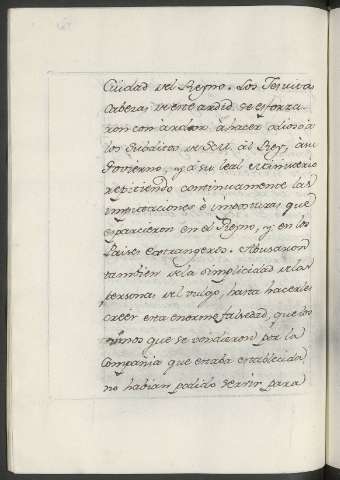 Ciudad del Reyno. Los Jesuitas
Cabezas de este ardid, se esforza-
ron con ardor à hacer odiosos à
los Subditos de S. M. al Rey, à su
Govierno, y à su leal Ministerio
repitiendo continuamente las
imputaciones è imposturas que
esparcieron en el Reyno, y en los
Paises estrangeros. Abusaron
tambien de la simplicidad de las
personas del vulgo, hasta hacerles
creer esta enorme falsedad, que los
vinos que se vendieron por la
Compañia que estaba establecida
no habian podido servir para